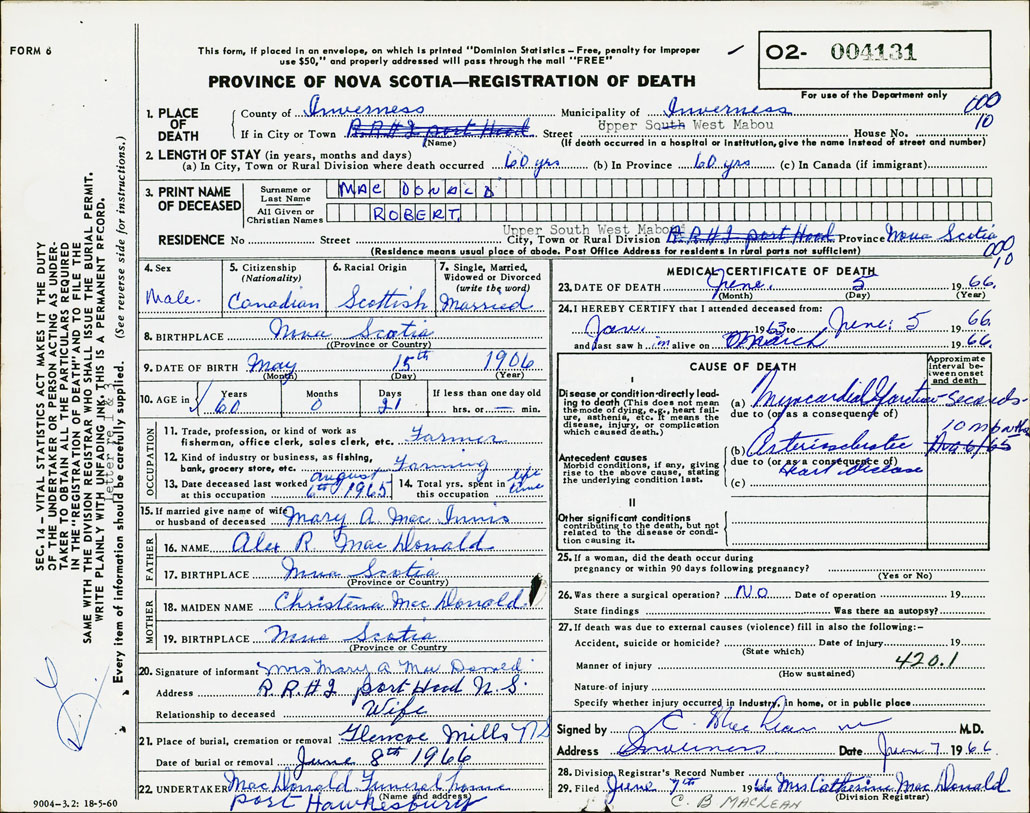 FORM 6
This form, if placed in an envelope, on which is printed "Dominion Statistics – Free, penalty for improper
use $50," and properly addressed will pass through the mail "FREE"
O2- 004131
PROVINCE OF NOVA SCOTIA—REGISTRATION OF DEATH
For use of the Department only
1. PLACE OF DEATH
County of Inverness Municipality of Inverness 000
Upper South West Mabou 10
If in City or Town R.R#2 port Hood Street House No.
(Name) (If death occurred in a hospital or institution, give the name instead of street and number)
2. LENGTH OF STAY (in years, months and days)
(a) In City, Town or Rural Division where death occurred 60 yrs (b) In Province 60 yrs (c) In Canada (if immigrant)
3. PRINT NAME OF DECEASED
Surname or Last Name MAC DONALD
All Given or Christian Names ROBERT
Upper South West Mabou
RESIDENCE No Street City, Town or Rural Division R.R#2 port Hood Province Nova Scotia
(Residence means usual place of abode. Post Office Address for residents in rural parts not sufficient) 000
10
4. Sex
Male.
5. Citizenship (Nationality)
Canadian
6. Racial Origin
Scottish
7. Single, Married, Widowed or Divorced (write the word)
Married
8. BIRTHPLACE Nova Scotia
(Province or Country)
9. DATE OF BIRTH May 15th 1906
(Month) (Day) (Year)
10. AGE in Years Months Days If less than one day old
60 0 21 hrs. or — min.
OCCUPATION
11. Trade, profession, or kind of work as
fisherman, office clerk, sales clerk, etc. Farmer
12. Kind of industry or business, as fishing,
bank, grocery store, etc. Farming
13. Date deceased last worked at this occupation august 6th 1965
14. Total yrs. spent in this occupation life time
15. If married give name of wife
or husband of deceased Mary A Mac Innis
FATHER
16. NAME Alex R. Mac Donald
17. BIRTHPLACE Nova Scotia
(Province or Country)
MOTHER
18. MAIDEN NAME Christena Mac Donald.
19. BIRTHPLACE Nova Scotia
(Province or Country)
20. Signature of informant Mrs Mary A Mac Donald
Address R R#2 port Hood N.S.
Relationship to deceased Wife
21. Place of burial, cremation or removal Glencoe Mills NS
Date of burial or removal June 8th 1966
22. UNDERTAKER Mac Donald Funeral home
(Name and address)
port Hawkesbury
9004-3.2: 18-5-60
MEDICAL CERTIFICATE OF DEATH
23. DATE OF DEATH June. 5 1966.
(Month) (Day) (Year)
24. I HEREBY CERTIFY that I attended deceased from:
Jan. 1963 to June: 5 1966.
and last saw him alive on March 1966.
CAUSE OF DEATH
Approximate interval between onset and death
I
Disease or condition directly leading to death (This does not mean the mode of dying, e.g., heart failure, asthenia, etc. It means the disease, injury, or complication which caused death.)
(a) Myocardial Infarction - Seconds -
due to (or as a consequence of)
10 months
(b) Arteriosclerotic Aug 6/65
due to (or as a consequence of)
Heart Disease
(c)
Antecedent causes
Morbid conditions, if any, giving rise to the above cause, stating the underlying condition last.
II
Other significant conditions
contributing to the death, but not related to the disease or condition causing it.
25. If a woman, did the death occur during
pregnancy or within 90 days following pregnancy?
(Yes or No)
26. Was there a surgical operation? NO Date of operation 19
State findings Was there an autopsy?
27. If death was due to external causes (violence) fill in also the following:–
Accident, suicide or homicide? Date of injury 19
(State which)
Manner of injury 420.1
(How sustained)
Nature of injury
Specify whether injury occurred in industry, in home, or in public place
Signed by C. MacLean M.D.
Address Inverness Date June 7 1966
28. Division Registrar's Record Number
29. Filed June 7th 1966 Mrs Catherine Mac Donald
(Division Registrar)
C. B MACLEAN
SEC. 14 – VITAL STATISTICS ACT MAKES IT THE DUTY
OF THE UNDERTAKER OR PERSON ACTING AS UNDER-
TAKER TO OBTAIN ALL THE PARTICULARS REQUIRED
IN THE "REGISTRATION OF DEATH" AND TO FILE THE
SAME WITH THE DIVISION REGISTRAR WHO SHALL ISSUE THE BURIAL PERMIT.
WRITE PLAINLY WITH UNFADING INK. THIS IS A PERMANENT RECORD.
Every item of information should be carefully supplied. (See reverse side for instructions.)